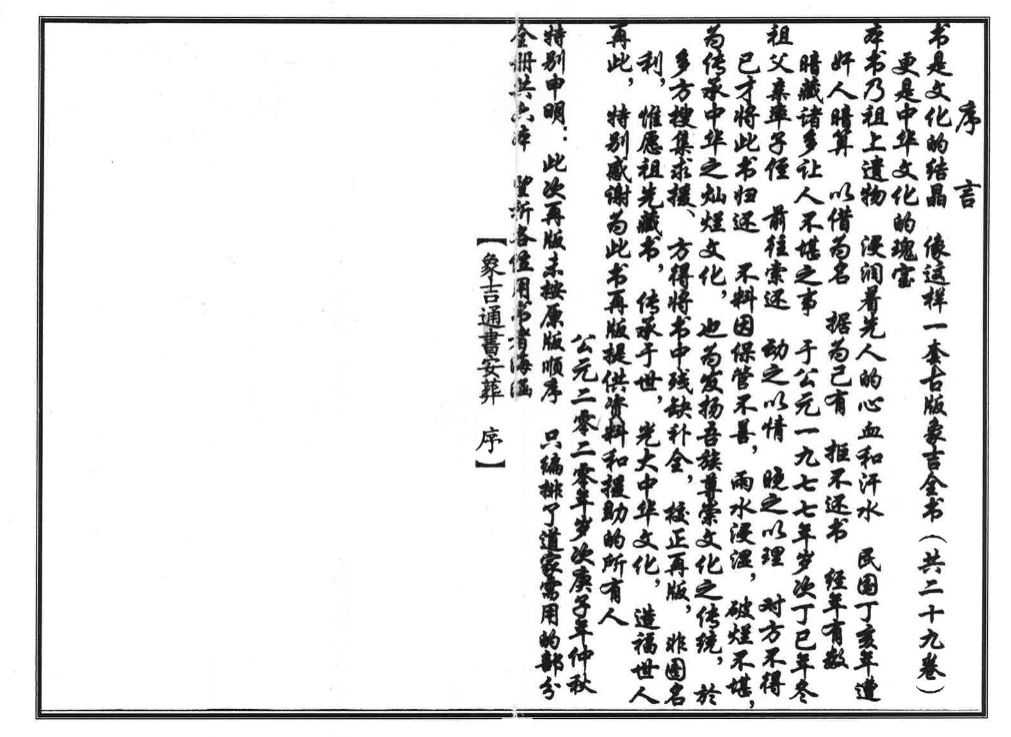 序言
书是文化的结晶 像这样一套古版象吉全书（共二十九卷）
更是中华文化的瑰宝
本书乃祖上遗物 浸润着先人的心血和汗水 民国丁亥年遭
奸人暗算 以借为名 据为己有 拒不还书 经年有数
暗藏诸多让人不堪之事 于公元一九七七年岁次丁巳年冬
祖父亲率子侄 前往索还 动之以情 晓之以理 对方不得
已才将此书归还 不料因保管不善，雨水浸湿，破烂不堪，
为传承中华之灿烂文化，也为发扬吾族尊崇文化之传统，於
多方搜集求援、方得将书中残缺补全，校正再版，非图名
利，惟愿祖先藏书，传承于世，光大中华文化，造福世人
再此，特别感谢为此书再版提供资料和援助的所有人
公元二零二零年岁次庚子年仲秋
特别申明：此次再版未按原版顺序 只编排了道家需用的部分
全册共六本 望所各位用书者海涵
【象吉通書安葬 序】